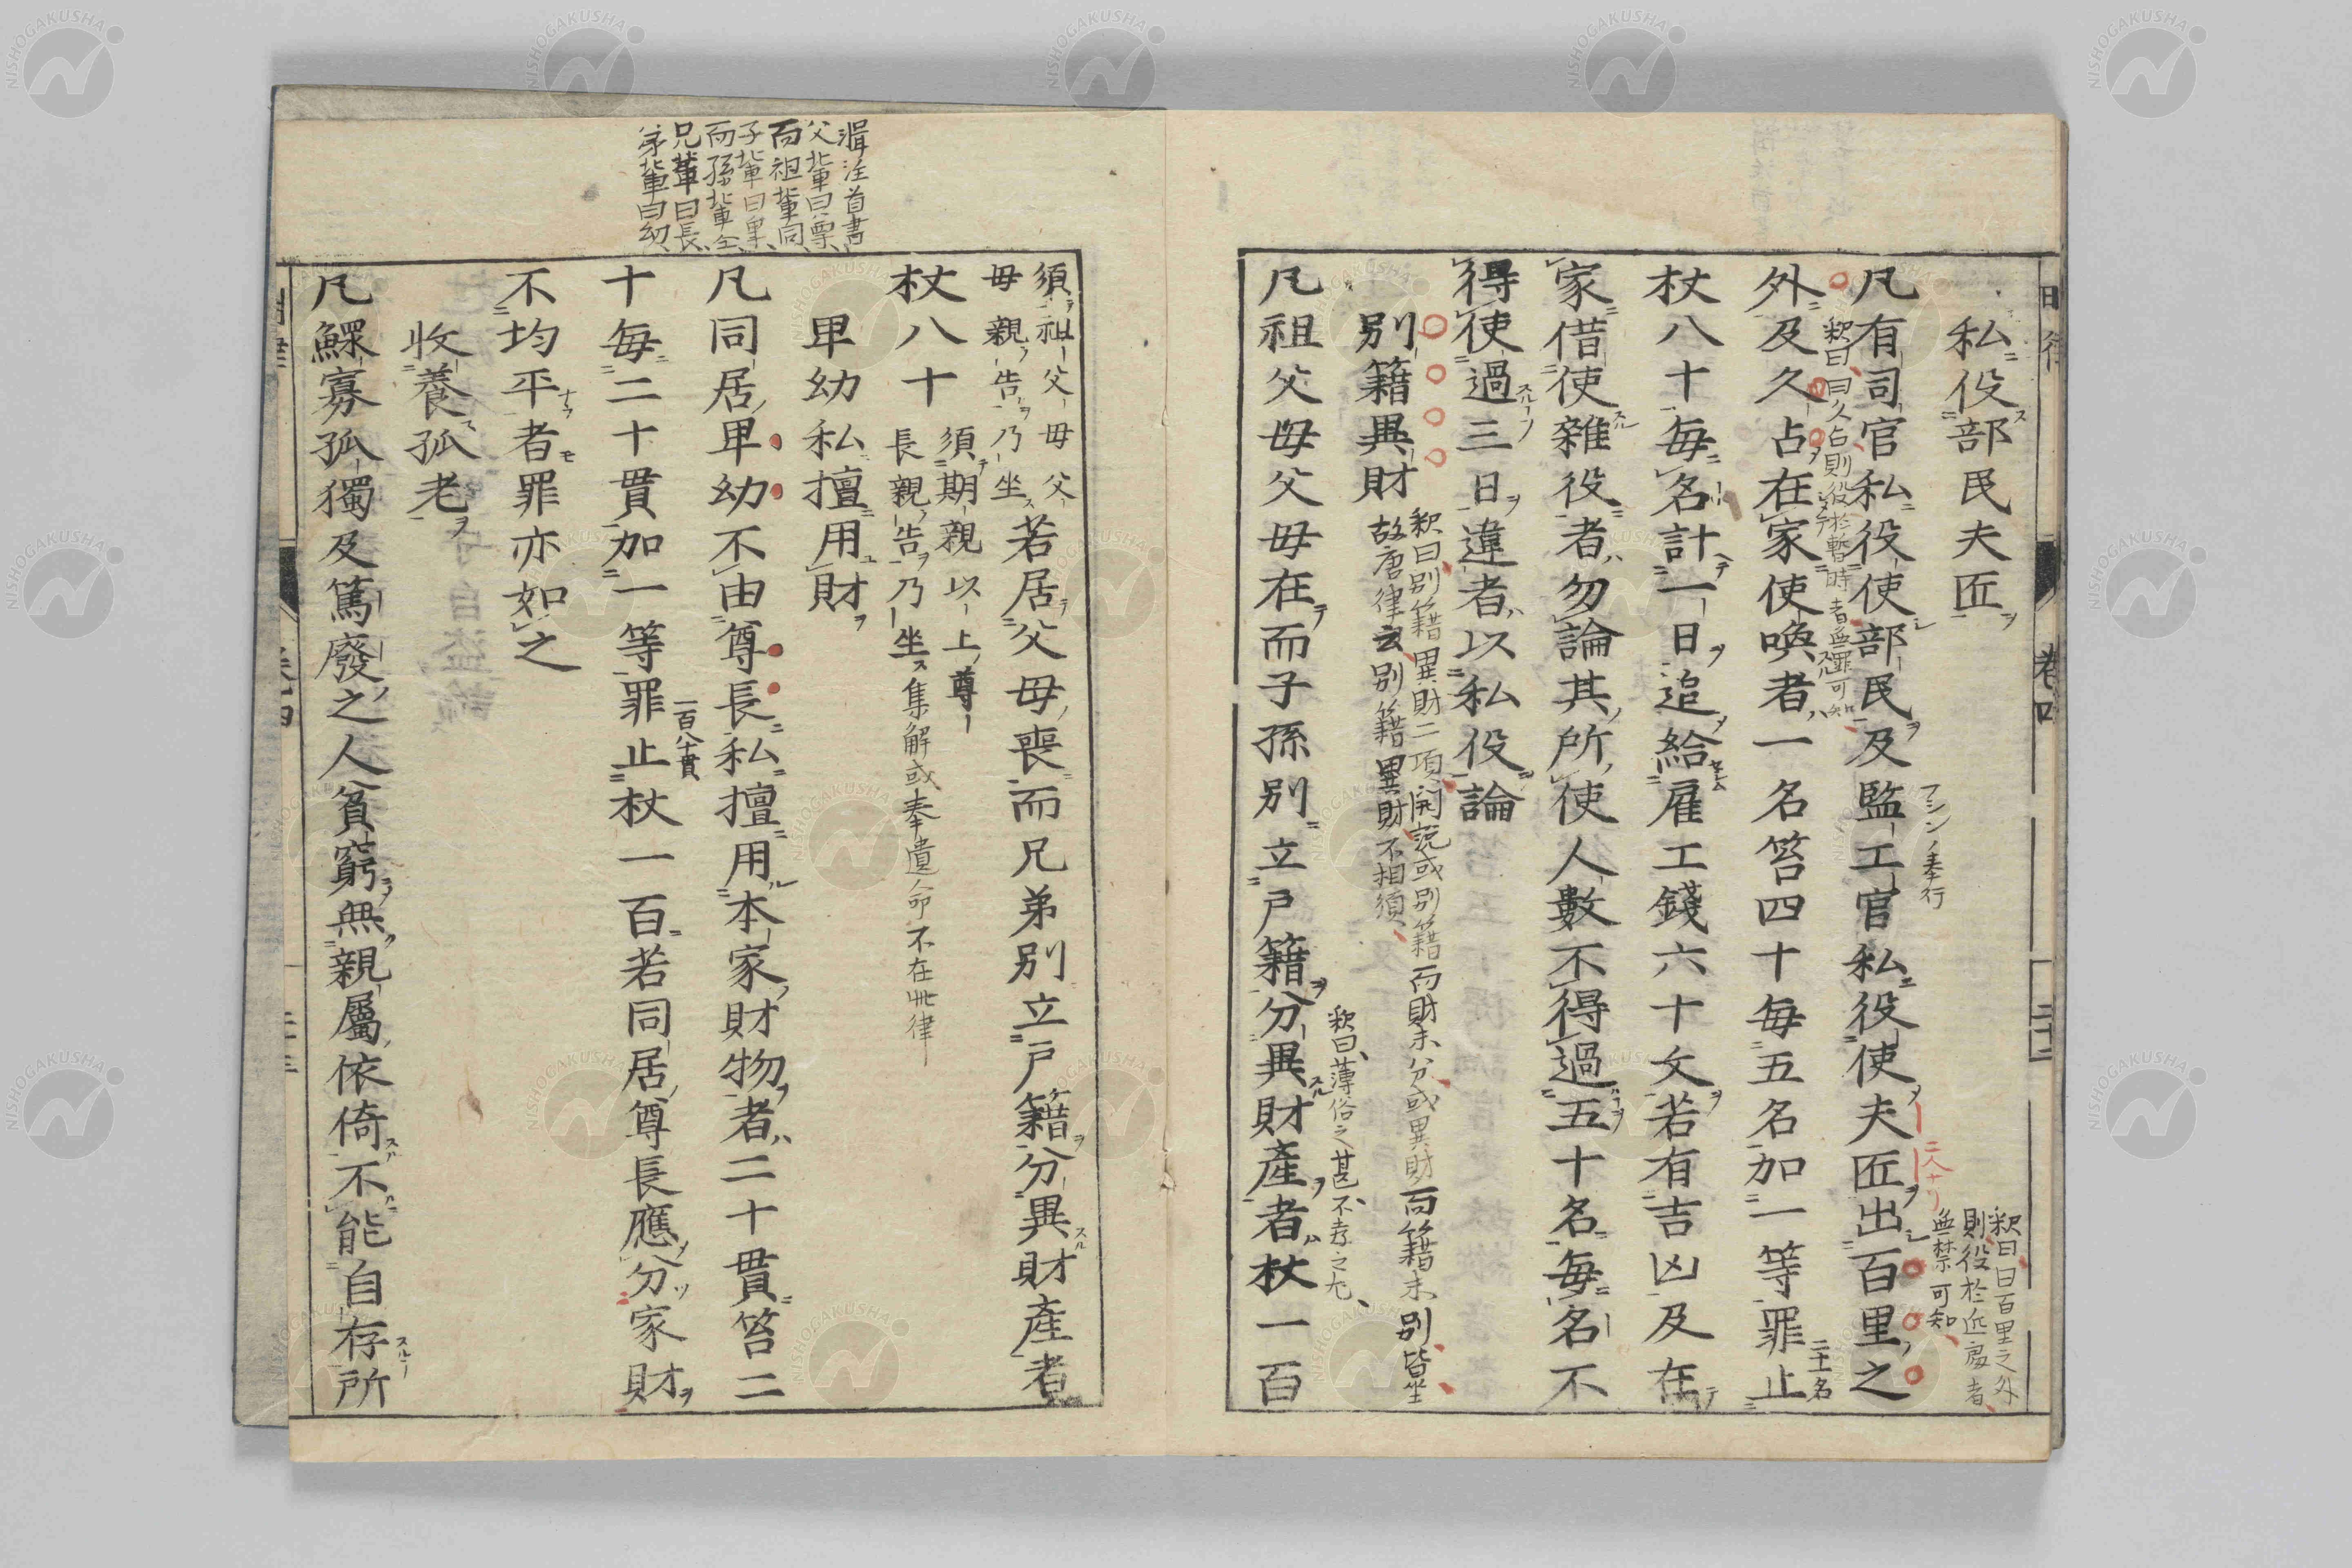 私役部民夫匠
凡有司官私役使部民及監工官私役使夫匠出百里之
外及久占在家使喚者一名笞四十每五名加一等罪止
杖八十每名計一日追給雇工錢六十文若有吉凶及在
家借使雜役者勿論其所使人數不得過五十名每名不
得使過三日違者以私役論
別籍異財
凡祖父母父母在而子孫別立戶籍分異財產者杖一百
釈曰曰百里之外
則役於近處者
無禁可知
二人ナリ
奉行
釈曰曰久占則役於暫時者無罪可知
二十名
釈曰別籍異財二項開説或別籍而財未分或異財而籍未別皆坐
故唐律云別籍異財不相須
釈曰薄俗之甚不孝之尤
須祖父母父
母親告乃坐
若居父母喪而兄弟別立戶籍分異財產者
杖八十
須期親以上尊
長親告乃坐
集解或奉遺命不在此律
卑幼私擅用財
凡同居卑幼不由尊長私擅用本家財物者二十貫笞二
十每二十貫加一等罪止杖一百若同居尊長應分家財
一百八十貫
不均平者罪亦如之
收養孤老
凡鰥寡孤獨及篤廢之人貧窮無親屬依倚不能自存所
輯注首書
父輩曰尊
而祖輩同
子輩曰卑
而孫輩仝
兄輩曰長
弟輩曰幼